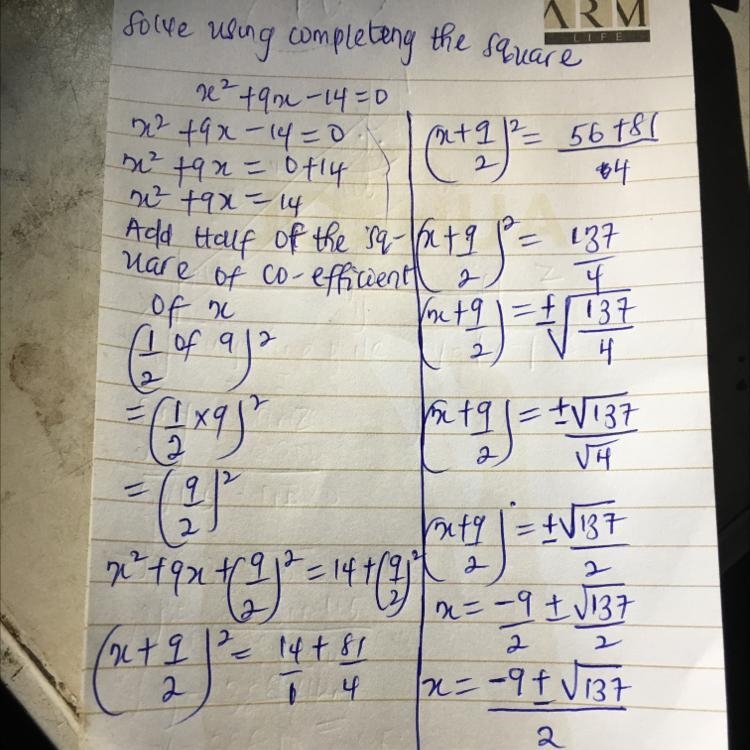 ARM
LIFE
Solve using completeng the square
x² + 9x - 14 = 0
x² + 9x - 14 = 0
x² + 9x = 0 + 14
x² + 9x = 14
Add Half of the sq-
uare of co-efficient
of x
(1/2 of 9)²
= (1/2 × 9)²
= (9/2)²
x² + 9x + (9/2)² = 14 + (9/2)²
(x + 9/2)² = 14/1 + 81/4
(x + 9/2)² = 56 + 81/4
(x + 9/2)² = 137/4
(x + 9/2) = ±√137/4
(x + 9/2) = ±√137/√4
x + 9/2) = ±√137/2
x = -9/2 ± √137/2
x = -9 ± √137/2